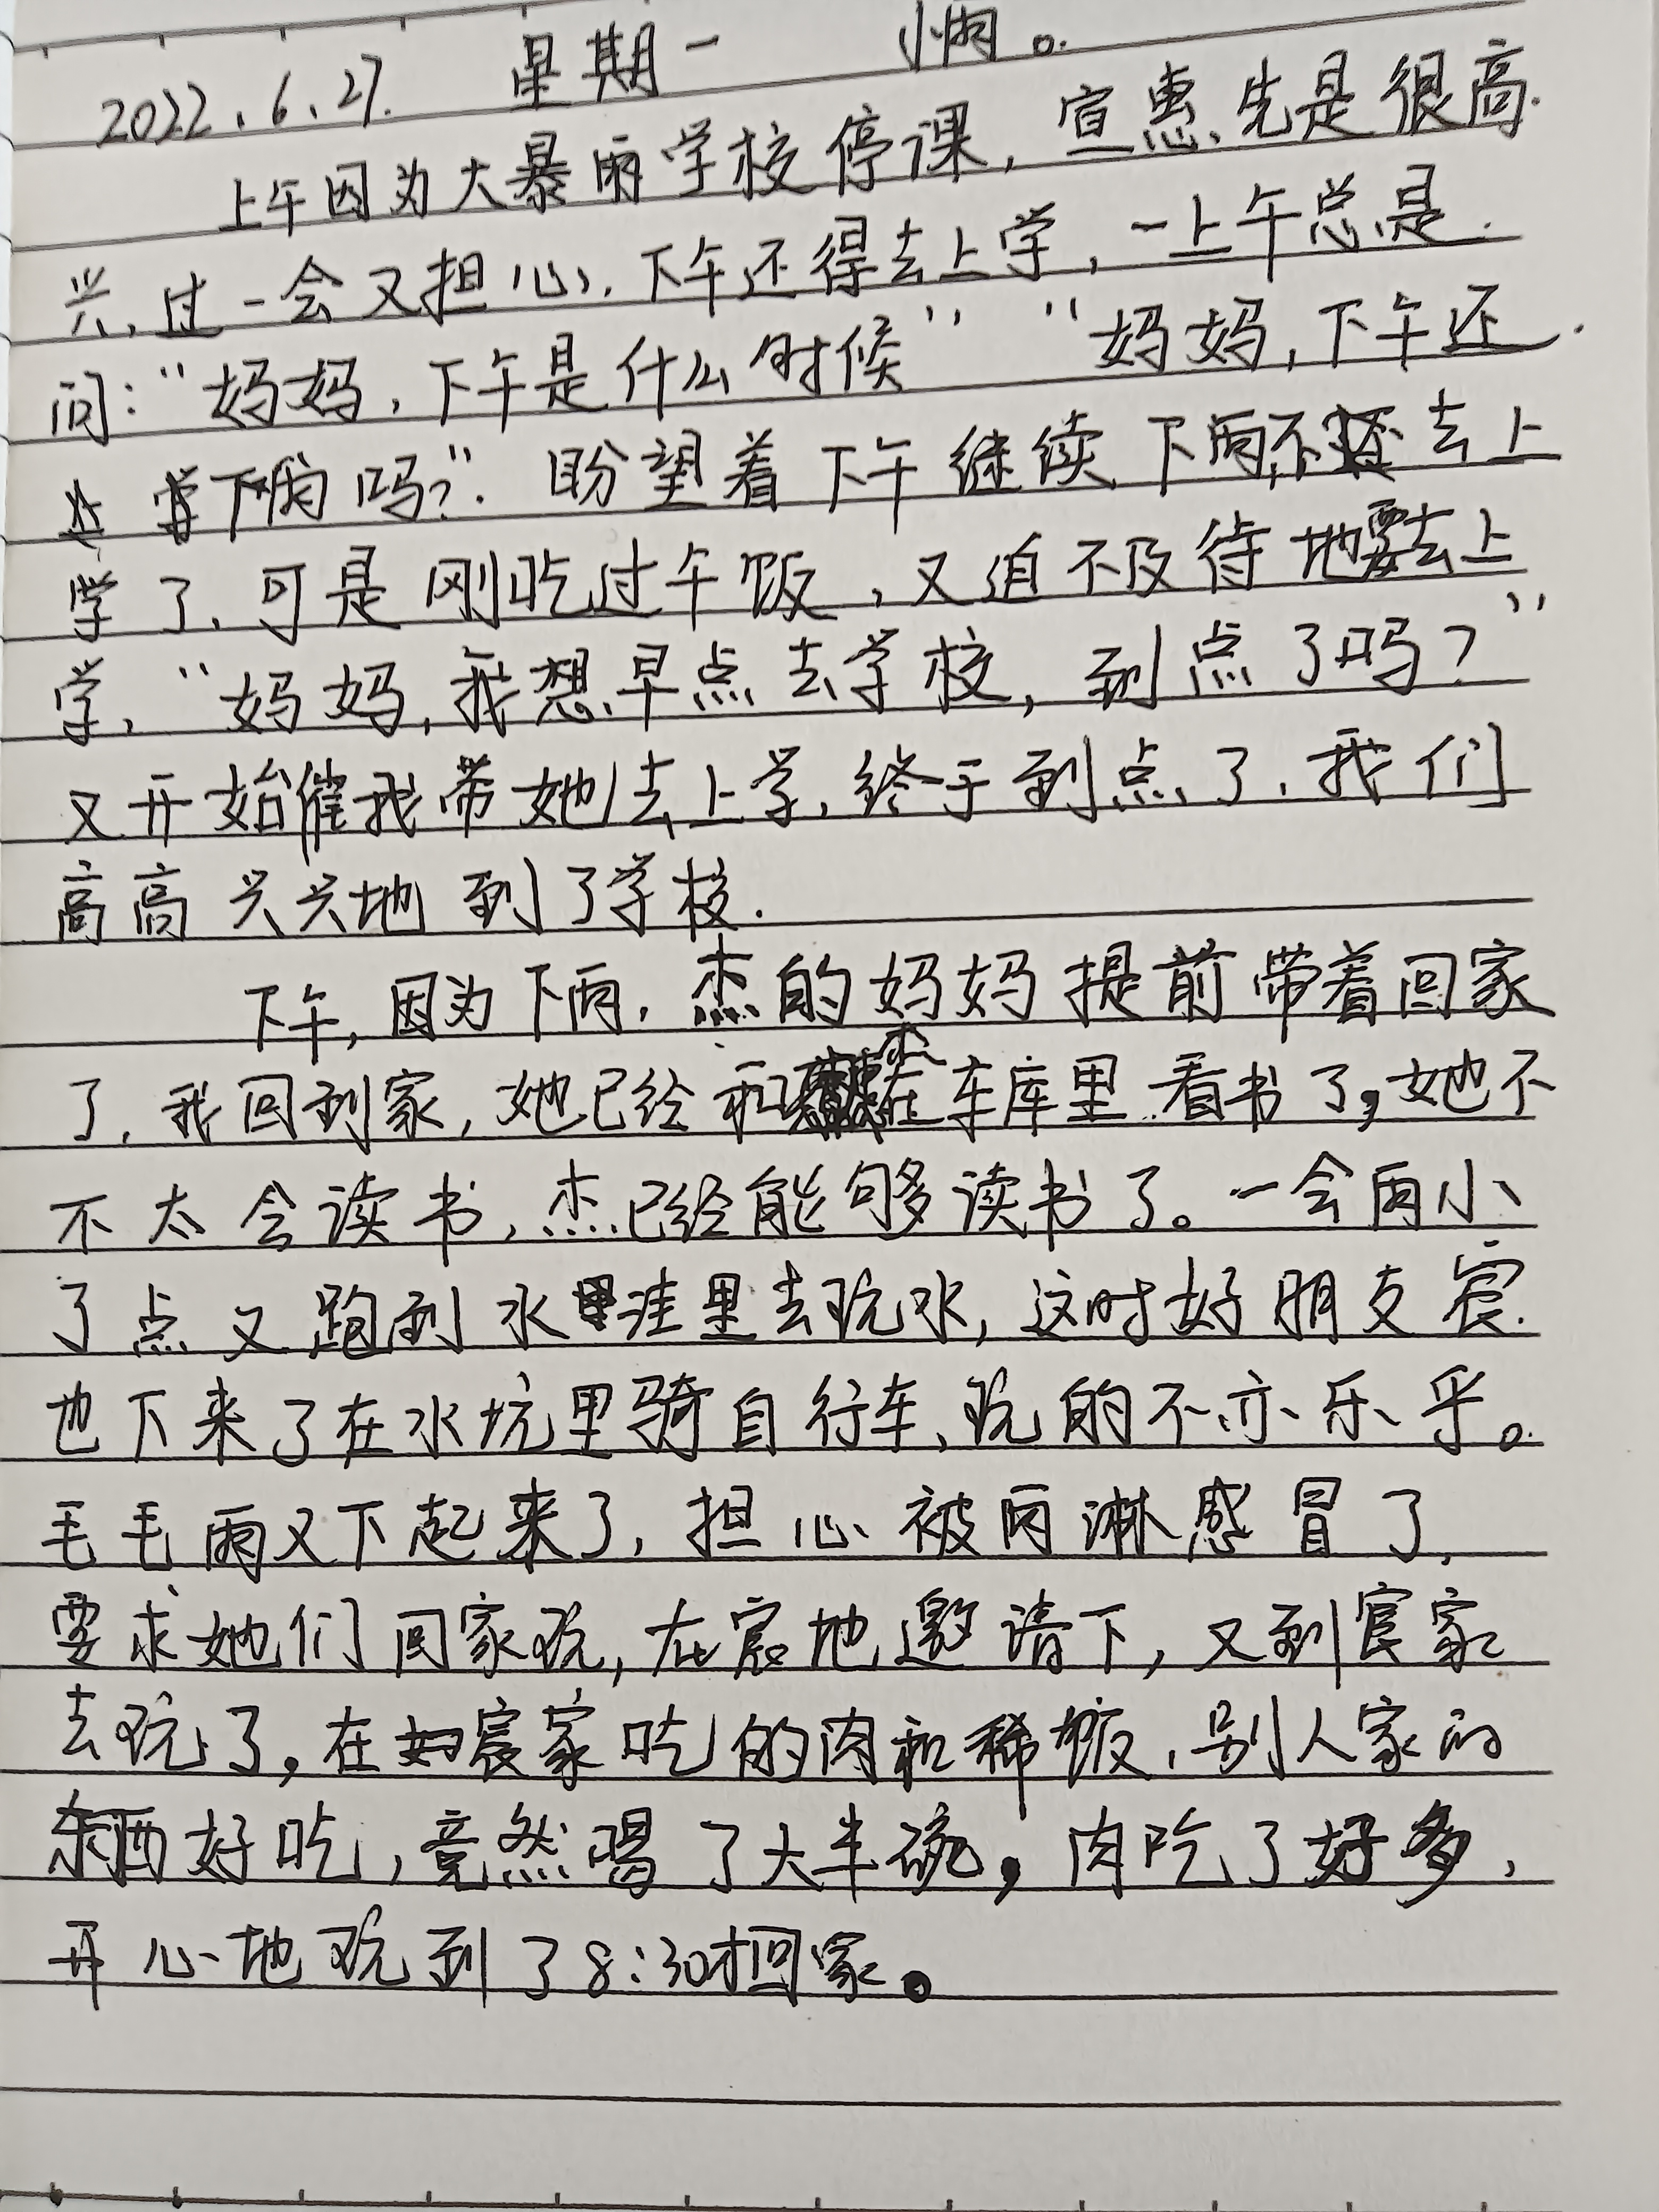 2022.6.27. 星期一 小雨。
上午因为大暴雨学校停课,宣惠先是很高
兴,过一会又担心,下午还得去上学,一上午总是
问:“妈妈,下午是什么时候”“妈妈,下午还
下雨吗?”.盼望着下午继续下雨,不去上
学了.可是刚吃过午饭,又迫不及待地要去上
学,“妈妈,我想早点去学校,到点了吗?”
又开始催我带她去上学,终于到点了,我们
高高兴兴地到了学校.
下午,因为下雨,杰的妈妈提前带着回家
了,我回到家,她已经和杰在车库里看书了,她不
不太会读书,杰已经能够读书了。一会雨小
了点又跑到水洼里去玩水,这时好朋友宸
也下来了在水坑里骑自行车,玩的不亦乐乎。
毛毛雨又下起来了,担心被雨淋感冒了,
要求她们回家玩,在宸地邀请下,又到宸家
去玩了,在宸家吃的肉和稀饭,别人家的
东西好吃,竟然喝了大半碗,肉吃了好多,
开心地玩到了8:30才回家。